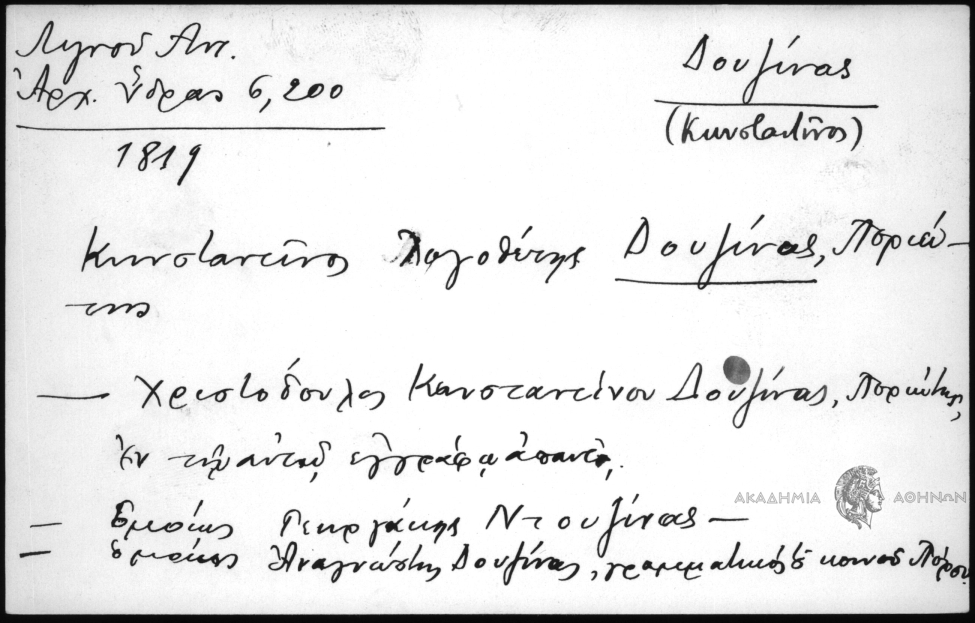 Λιγνοῦ Αντ.
Ἀρχ. Ὕδρας 6,200
1819
Δουζίνας
(Κωνσταντῖνος)
Κωνσταντῖνος Λογοθέτης Δουζίνας, Ποριώ-
της
— Χριστόδουλος Κωνσταντίνου Δουζίνας, Ποριώτης,
ἐν τῷ αὐτῷ ἐγγράφῳ ἀπαντᾷ.
— Ὁμοίως Γεωργάκης Ντουζίνας —
— ὁμοίως Ἀναγνώστης Δουζίνας, γραμματικός κοινοῦ Πόρου
ΑΚΑΔΗΜΙΑ ΑΘΗΝΩΝ